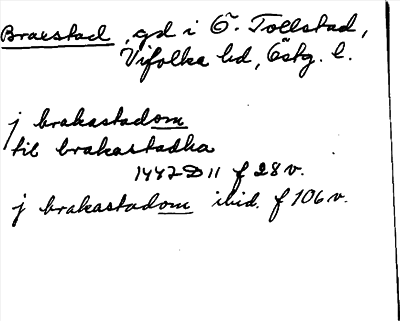 Braestad, gd i Ö. Tollstad,
Vifolka hd, Östg. l.
j brakastadom
til brakastadha
1447 D 11 f 28 v.
j brakastadom ibid. f 106 v.